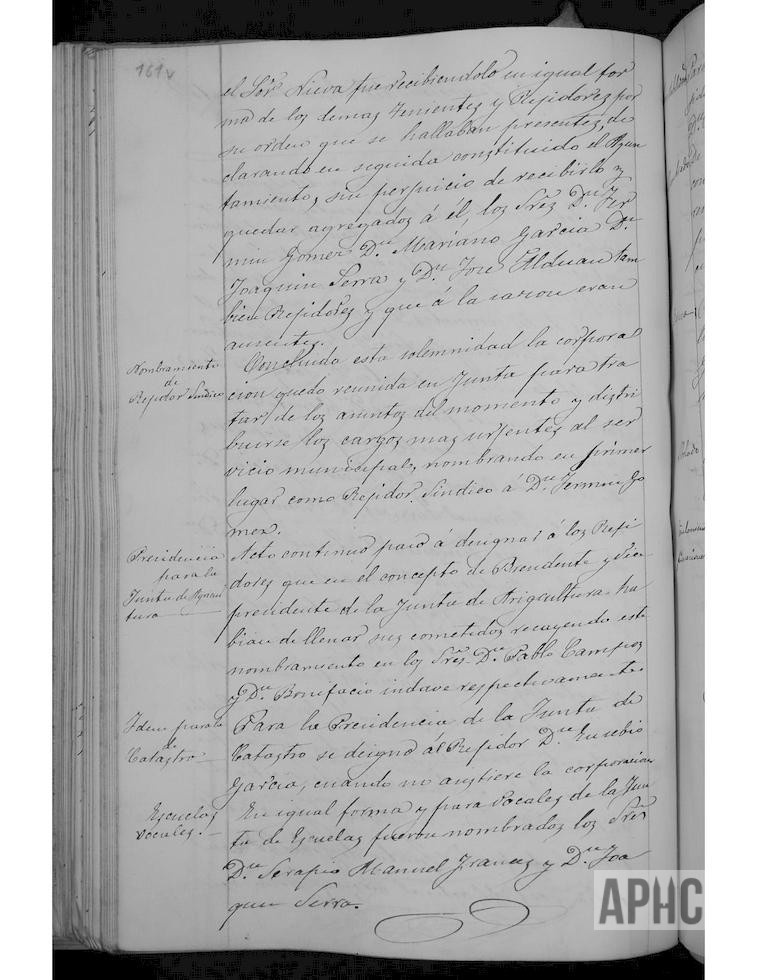 161v
el Sor. Nieva fue recibiendolo en igual for
ma de los demas Tenientes y Rejidores por
su orden que se hallaban presentes, de
clarando en seguida constituido el Ayun
tamiento, sin perjuicio de recibirlo y
quedar agregados á él, los Sres Dn. Fer
min Gomez Dn. Mariano Garcia Dn.
Joaquin Serra y Dn. Jose Alduan tam
bien Rejidores y que á la sazon eran
ausentes.
Nombramiento
de
Rejidor Sindico
Concluida esta solemnidad la corpora
cion quedo reunida en Junta para tra
tar de los asuntos del momento y distri
buirse los cargos mas urjentes al ser
vicio municipal, nombrando en primer
lugar como Rejidor Sindico á Dn. Fermin Go
mez.
Presidencia
para la
Junta de Agricul
tura
Acto continuo pasó á designar á los Reji
dores que en el concepto de Presidente y Vice
presidente de la Junta de Arigcultura ha
bian de llenar sus cometidos recayendo este
nombramiento en los Sres. Dn. Pablo Campos
y Dn. Bonifacio indave respectivamente.
Idem para la
de
Catastro
Para la Presidencia de la Junta de
Catastro se deignó al Rejidor Dn. Eusebio
Garcia, cuando no asistiere la corporacion
Escuelas
Vocales.
En igual forma y para Vocales de la Jun
ta de Escuelas fueron nombrados los Sres
Dn. Serapio Manuel Frances y Dn. Joa
quin Serra.
APHC